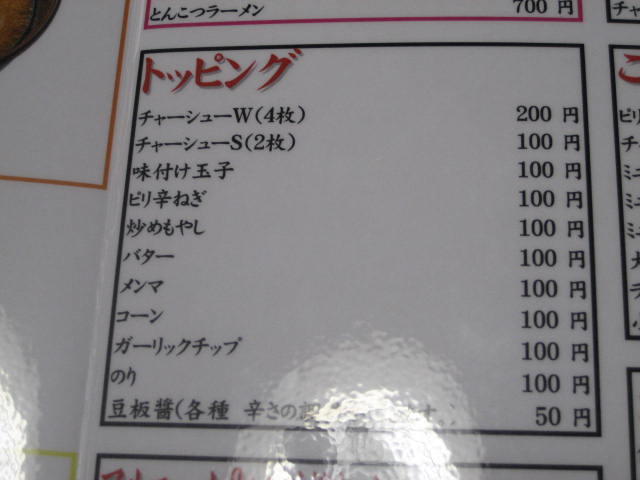 とんこつラーメン 700 円
トッピング
チャーシューW(4枚) 200 円
チャーシューS(2枚) 100 円
味付け玉子 100 円
ピリ辛ねぎ 100 円
炒めもやし 100 円
バター 100 円
メンマ 100 円
コーン 100 円
ガーリックチップ 100 円
のり 100 円
豆板醤(各種 辛さの す。) 50 円